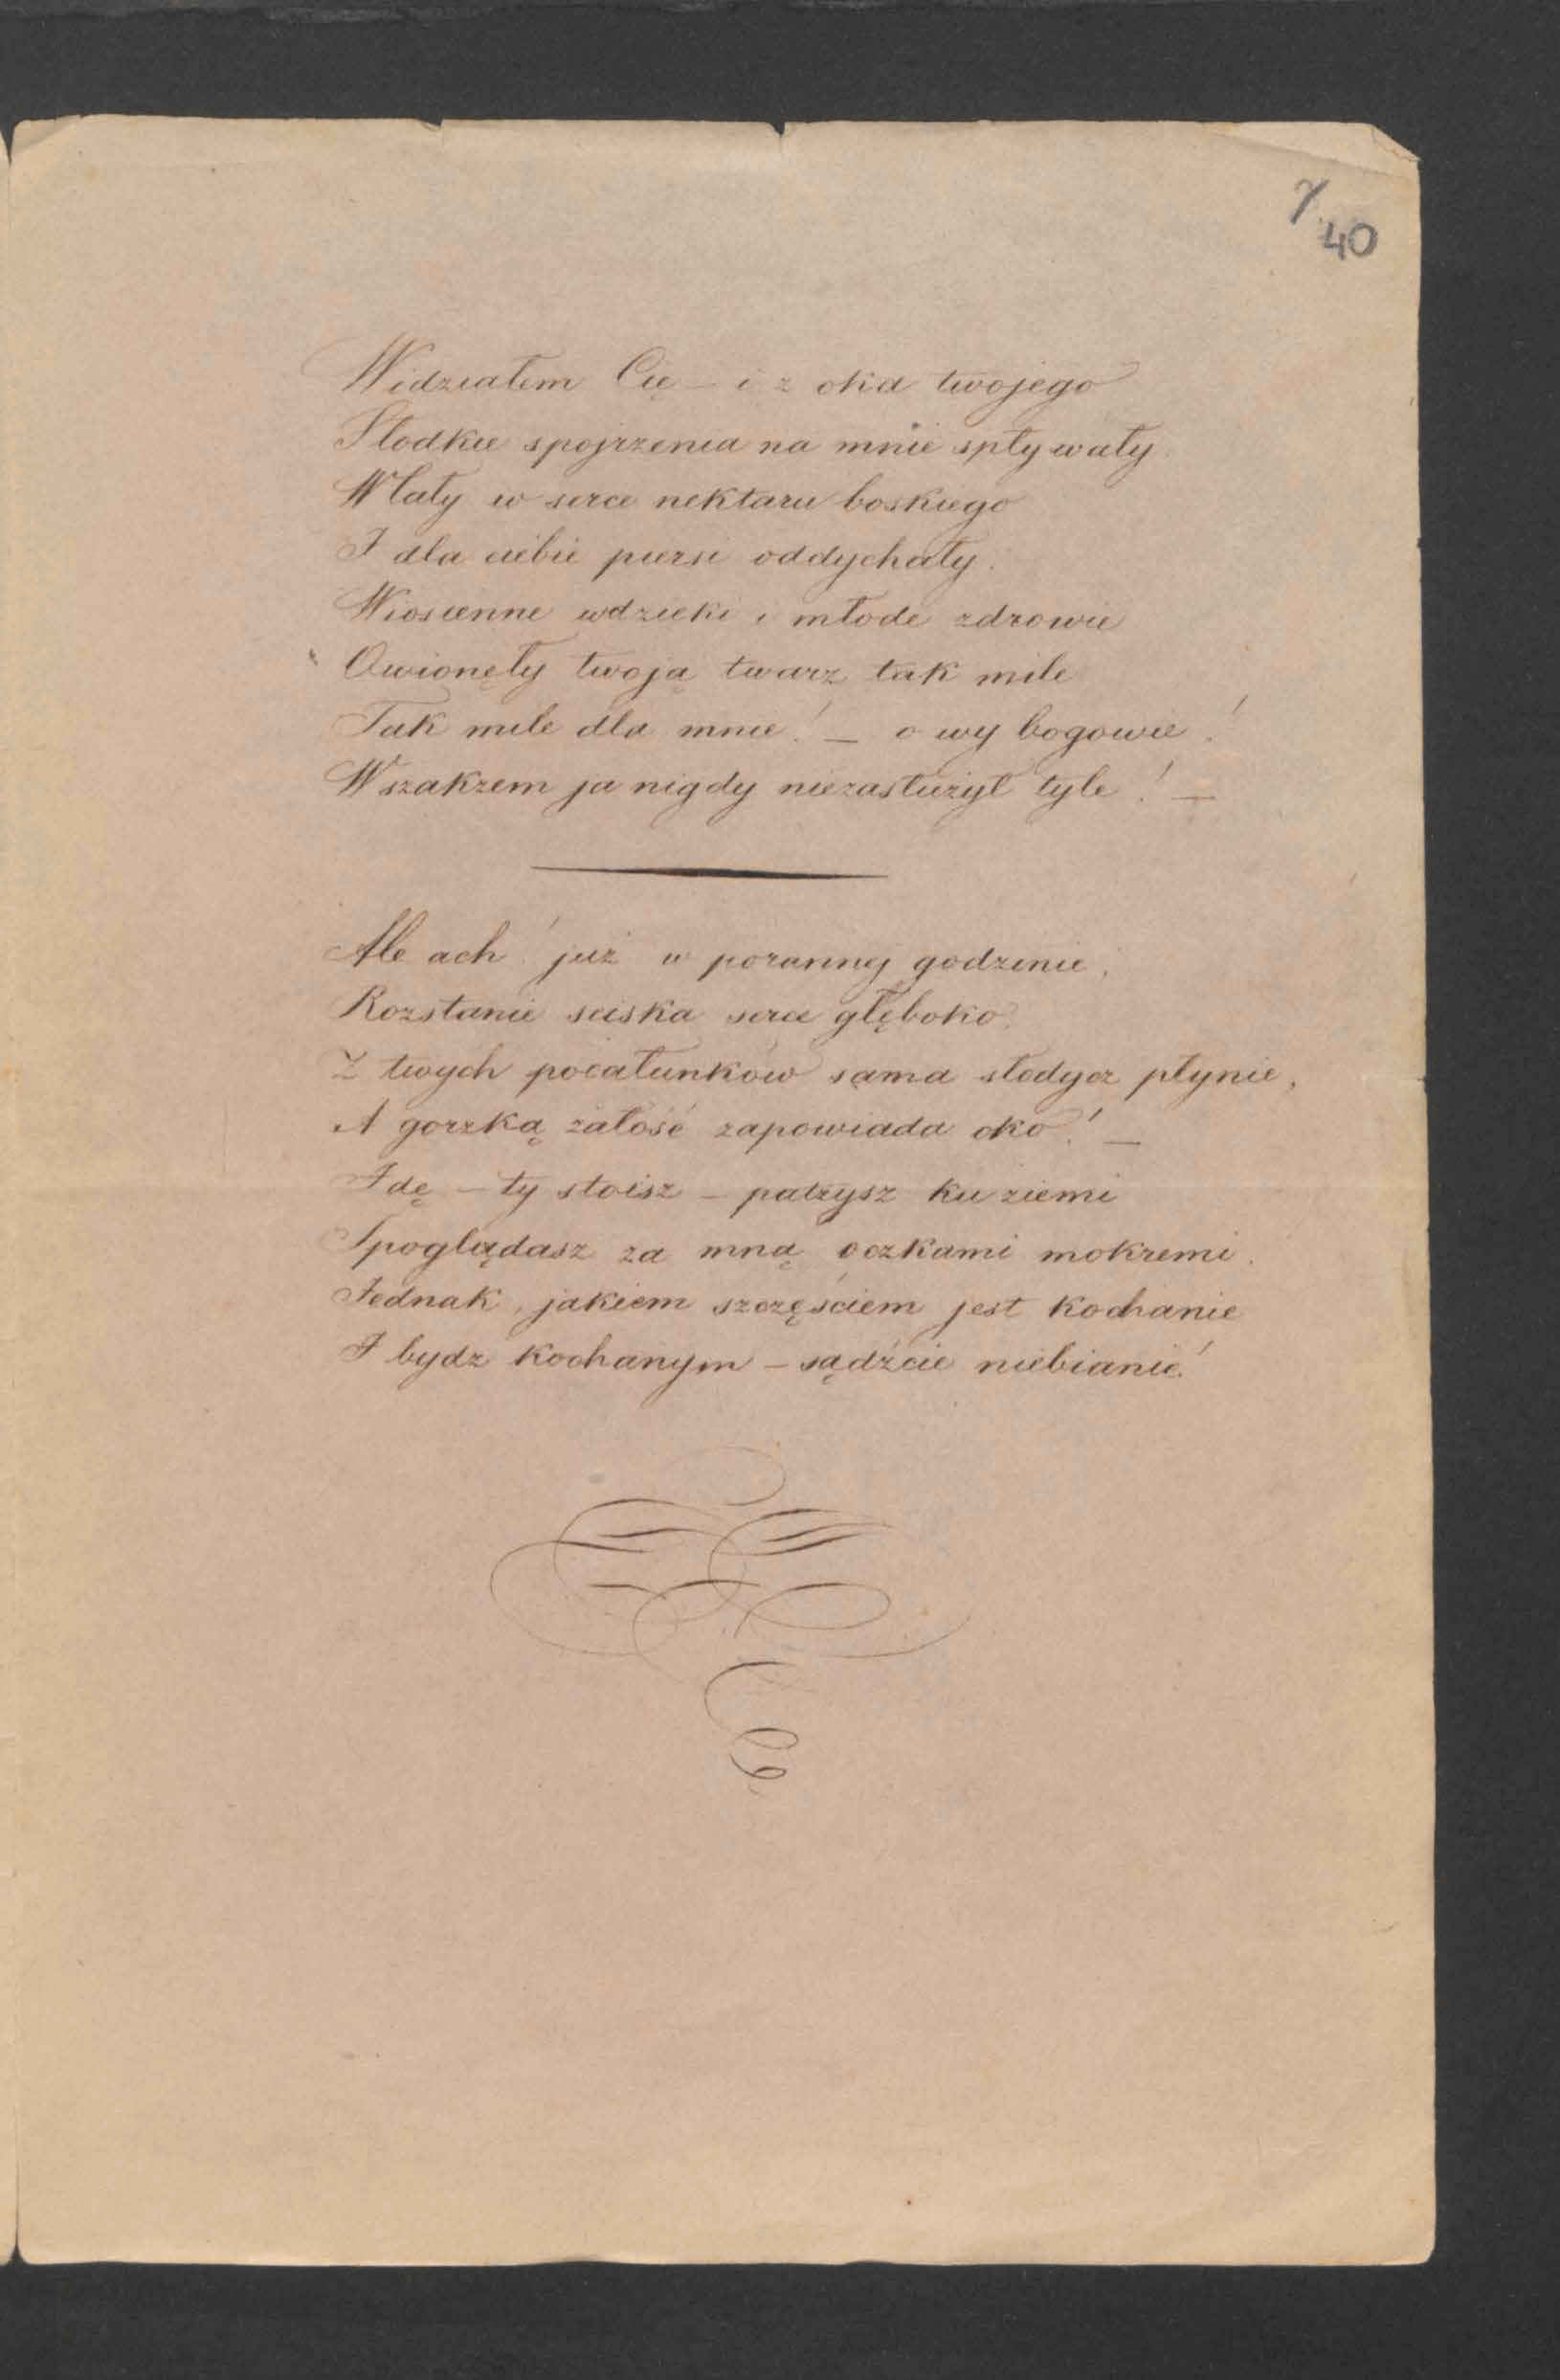 7
40
Widziałem Cię – i z oka twojego
Słodkie spojrzenia na mnie spływały
Wlały w serce nektaru boskiego
I dla ciebie piersi oddychały.
Wiosienne wdzieki i młode zdrowie
Owionęły twoją twarz tak mile
Tak mile dla mnie! – o wy bogowie!
Wszakzem ja nigdy niezasłużył tyle! –
Ale ach! już w porannej godzinie,
Rozstanie sciska serce głęboko.
Z twych pocałunków sama słodycz płynie,
A gorzką załość zapowiada oko! –
Idę – ty stoisz – patrzysz ku ziemi
Spoglądasz za mną oczkami mokremi.
Jednak, jakiem szczęściem jest kochanie
I bydz kochanym – sądźcie niebianie!